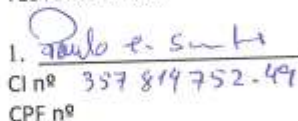 1. Paulo
CI nº 357 814 752-49
CPF nº